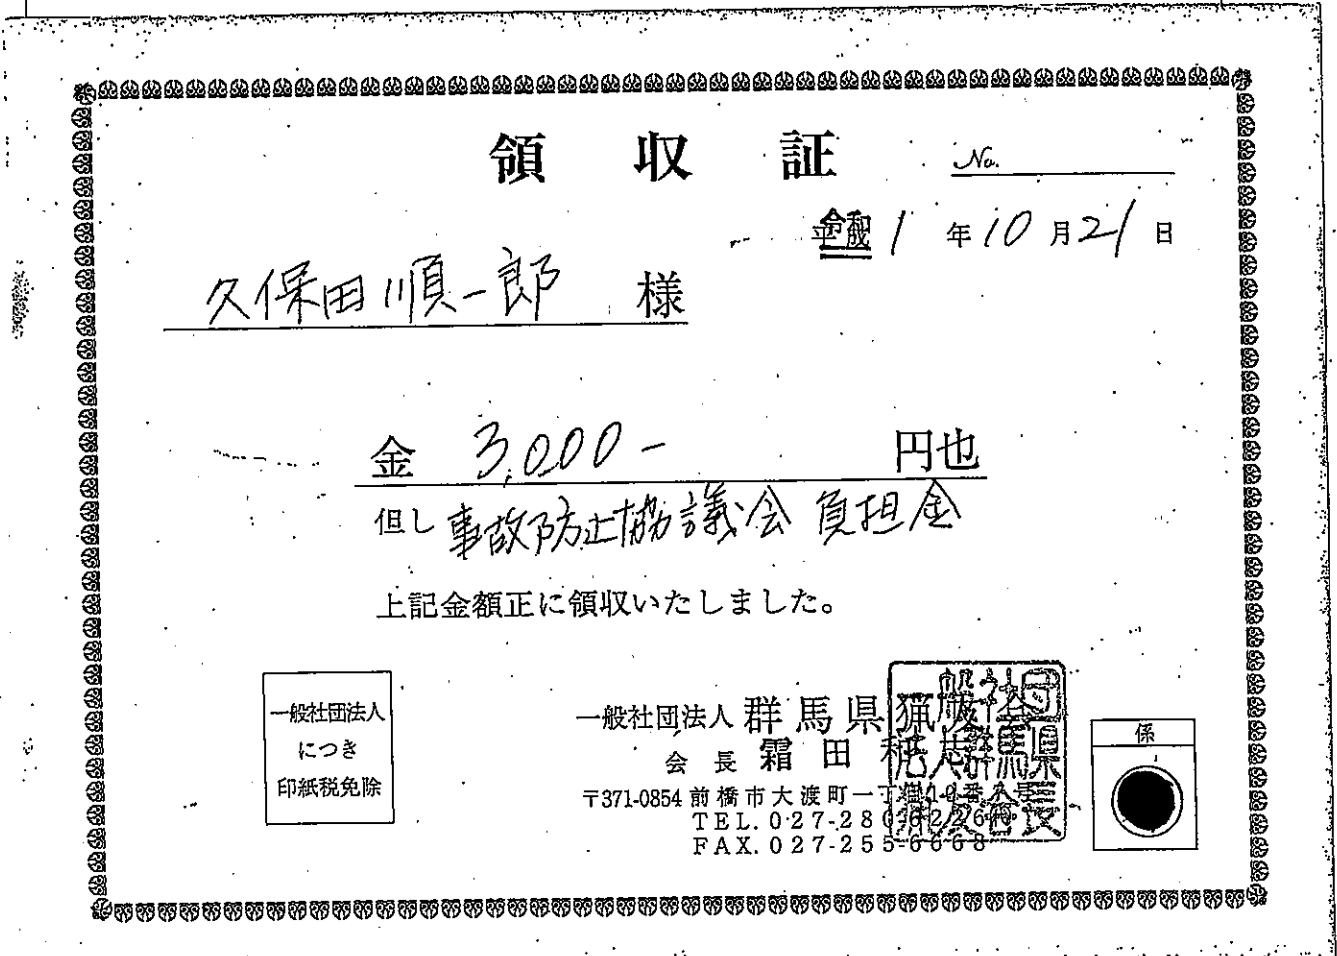 領収証
No.
令和1年10月21日
久保田順一郎 様
金 3,000- 円也
但し 事故防止協議会 負担金
上記金額正に領収いたしました。
一般社団法人
につき
印紙税免除
一般社団法人 群馬県猟友会
会長 霜田
〒371-0854 前橋市大渡町一丁目
TEL. 027-280-6226
FAX. 027-255-6668
係